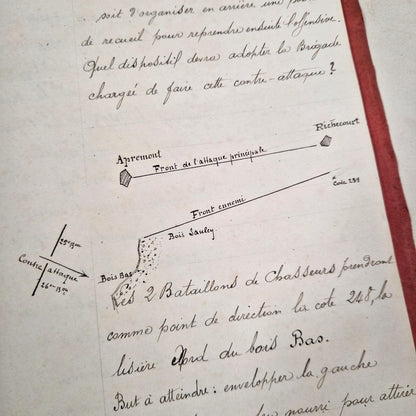 soit d'organiser en arrière une
de recueil pour reprendre ensuite l'offensive.
Quel dispositif devra adopter la Brigade
chargée de faire cette contre-attaque ?
Richecourt
Apremont
Front de l'attaque principale
Côte 239
Front ennemi
Bois Jauley
25e Bon
Contre attaque
26e Bon
Bois Bas
Les 2 Bataillons de Chasseurs prendront
comme point de direction la cote 248, la
lisière Nord du bois Bas.
But à atteindre : envelopper la gauche
nourri pour attirer